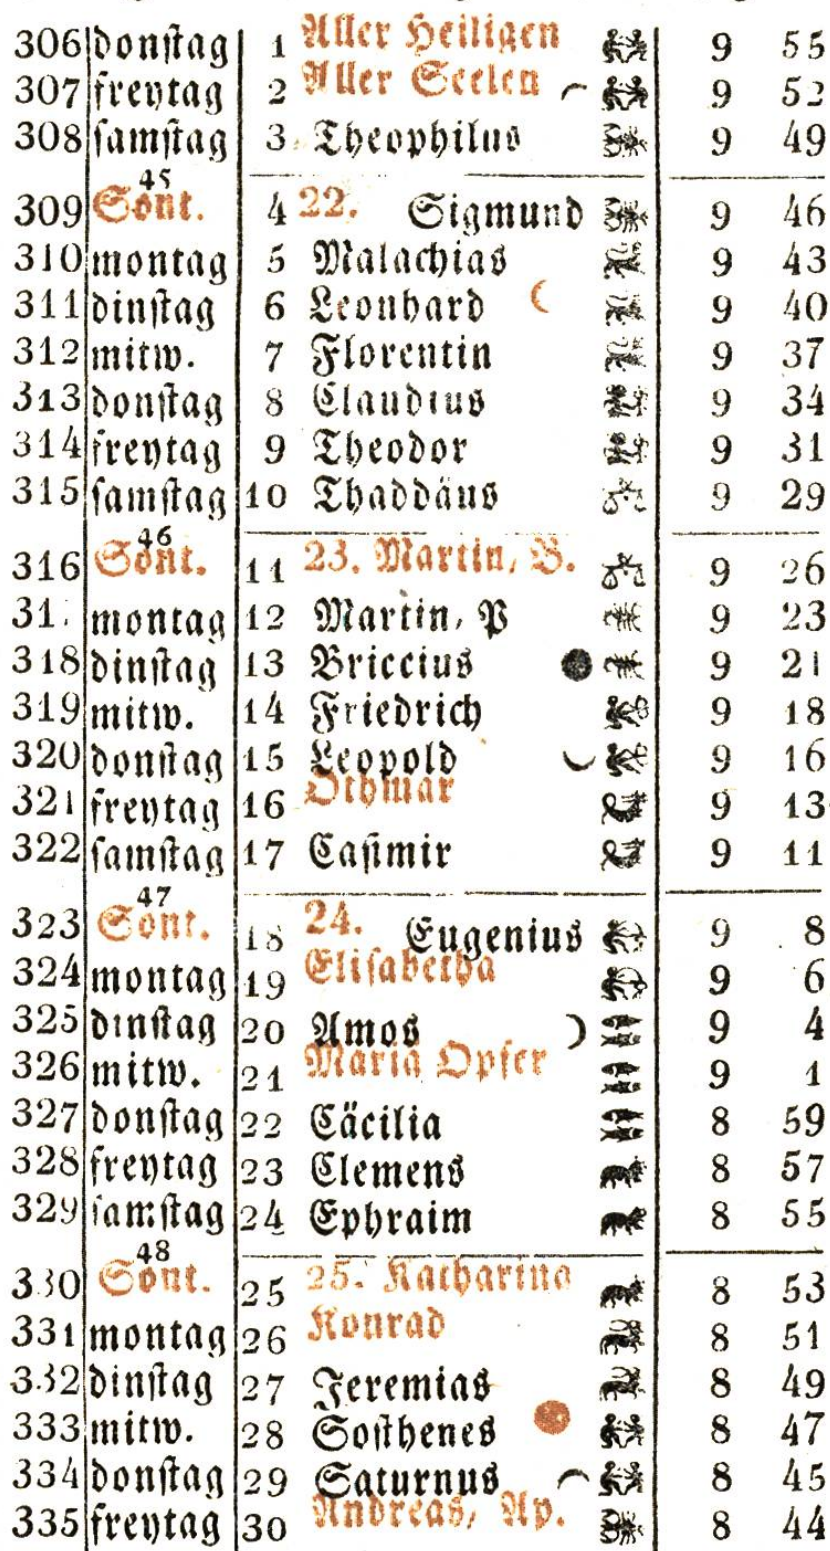 306 donſtag 1 Aller Heiligen 9 55
307 freytag 2 Aller Seelen 9 52
308 ſamſtag 3 Theophilus 9 49
45
309 Sont. 4 22. Sigmund 9 46
310 montag 5 Malachias 9 43
311 dinſtag 6 Leonhard 9 40
312 mitw. 7 Florentin 9 37
313 donſtag 8 Claudius 9 34
314 freytag 9 Theodor 9 31
315 ſamſtag 10 Thaddäus 9 29
46
316 Sont. 11 23. Martin, B. 9 26
31. montag 12 Martin, P 9 23
318 dinſtag 13 Briccius 9 21
319 mitw. 14 Friedrich 9 18
320 donſtag 15 Leopold 9 16
321 freytag 16 Othmar 9 13
322 ſamſtag 17 Caſimir 9 11
47
323 Sont. 18 24. Eugenius 9 8
324 montag 19 Eliſabetha 9 6
325 dinſtag 20 Amos 9 4
326 mitw. 21 Maria Opfer 9 1
327 donſtag 22 Cäcilia 8 59
328 freytag 23 Clemens 8 57
329 ſamſtag 24 Ephraim 8 55
48
330 Sont. 25 25. Katharina 8 53
331 montag 26 Konrad 8 51
332 dinſtag 27 Jeremias 8 49
333 mitw. 28 Soſthenes 8 47
334 donſtag 29 Saturnus 8 45
335 freytag 30 Andreas, Ap. 8 44